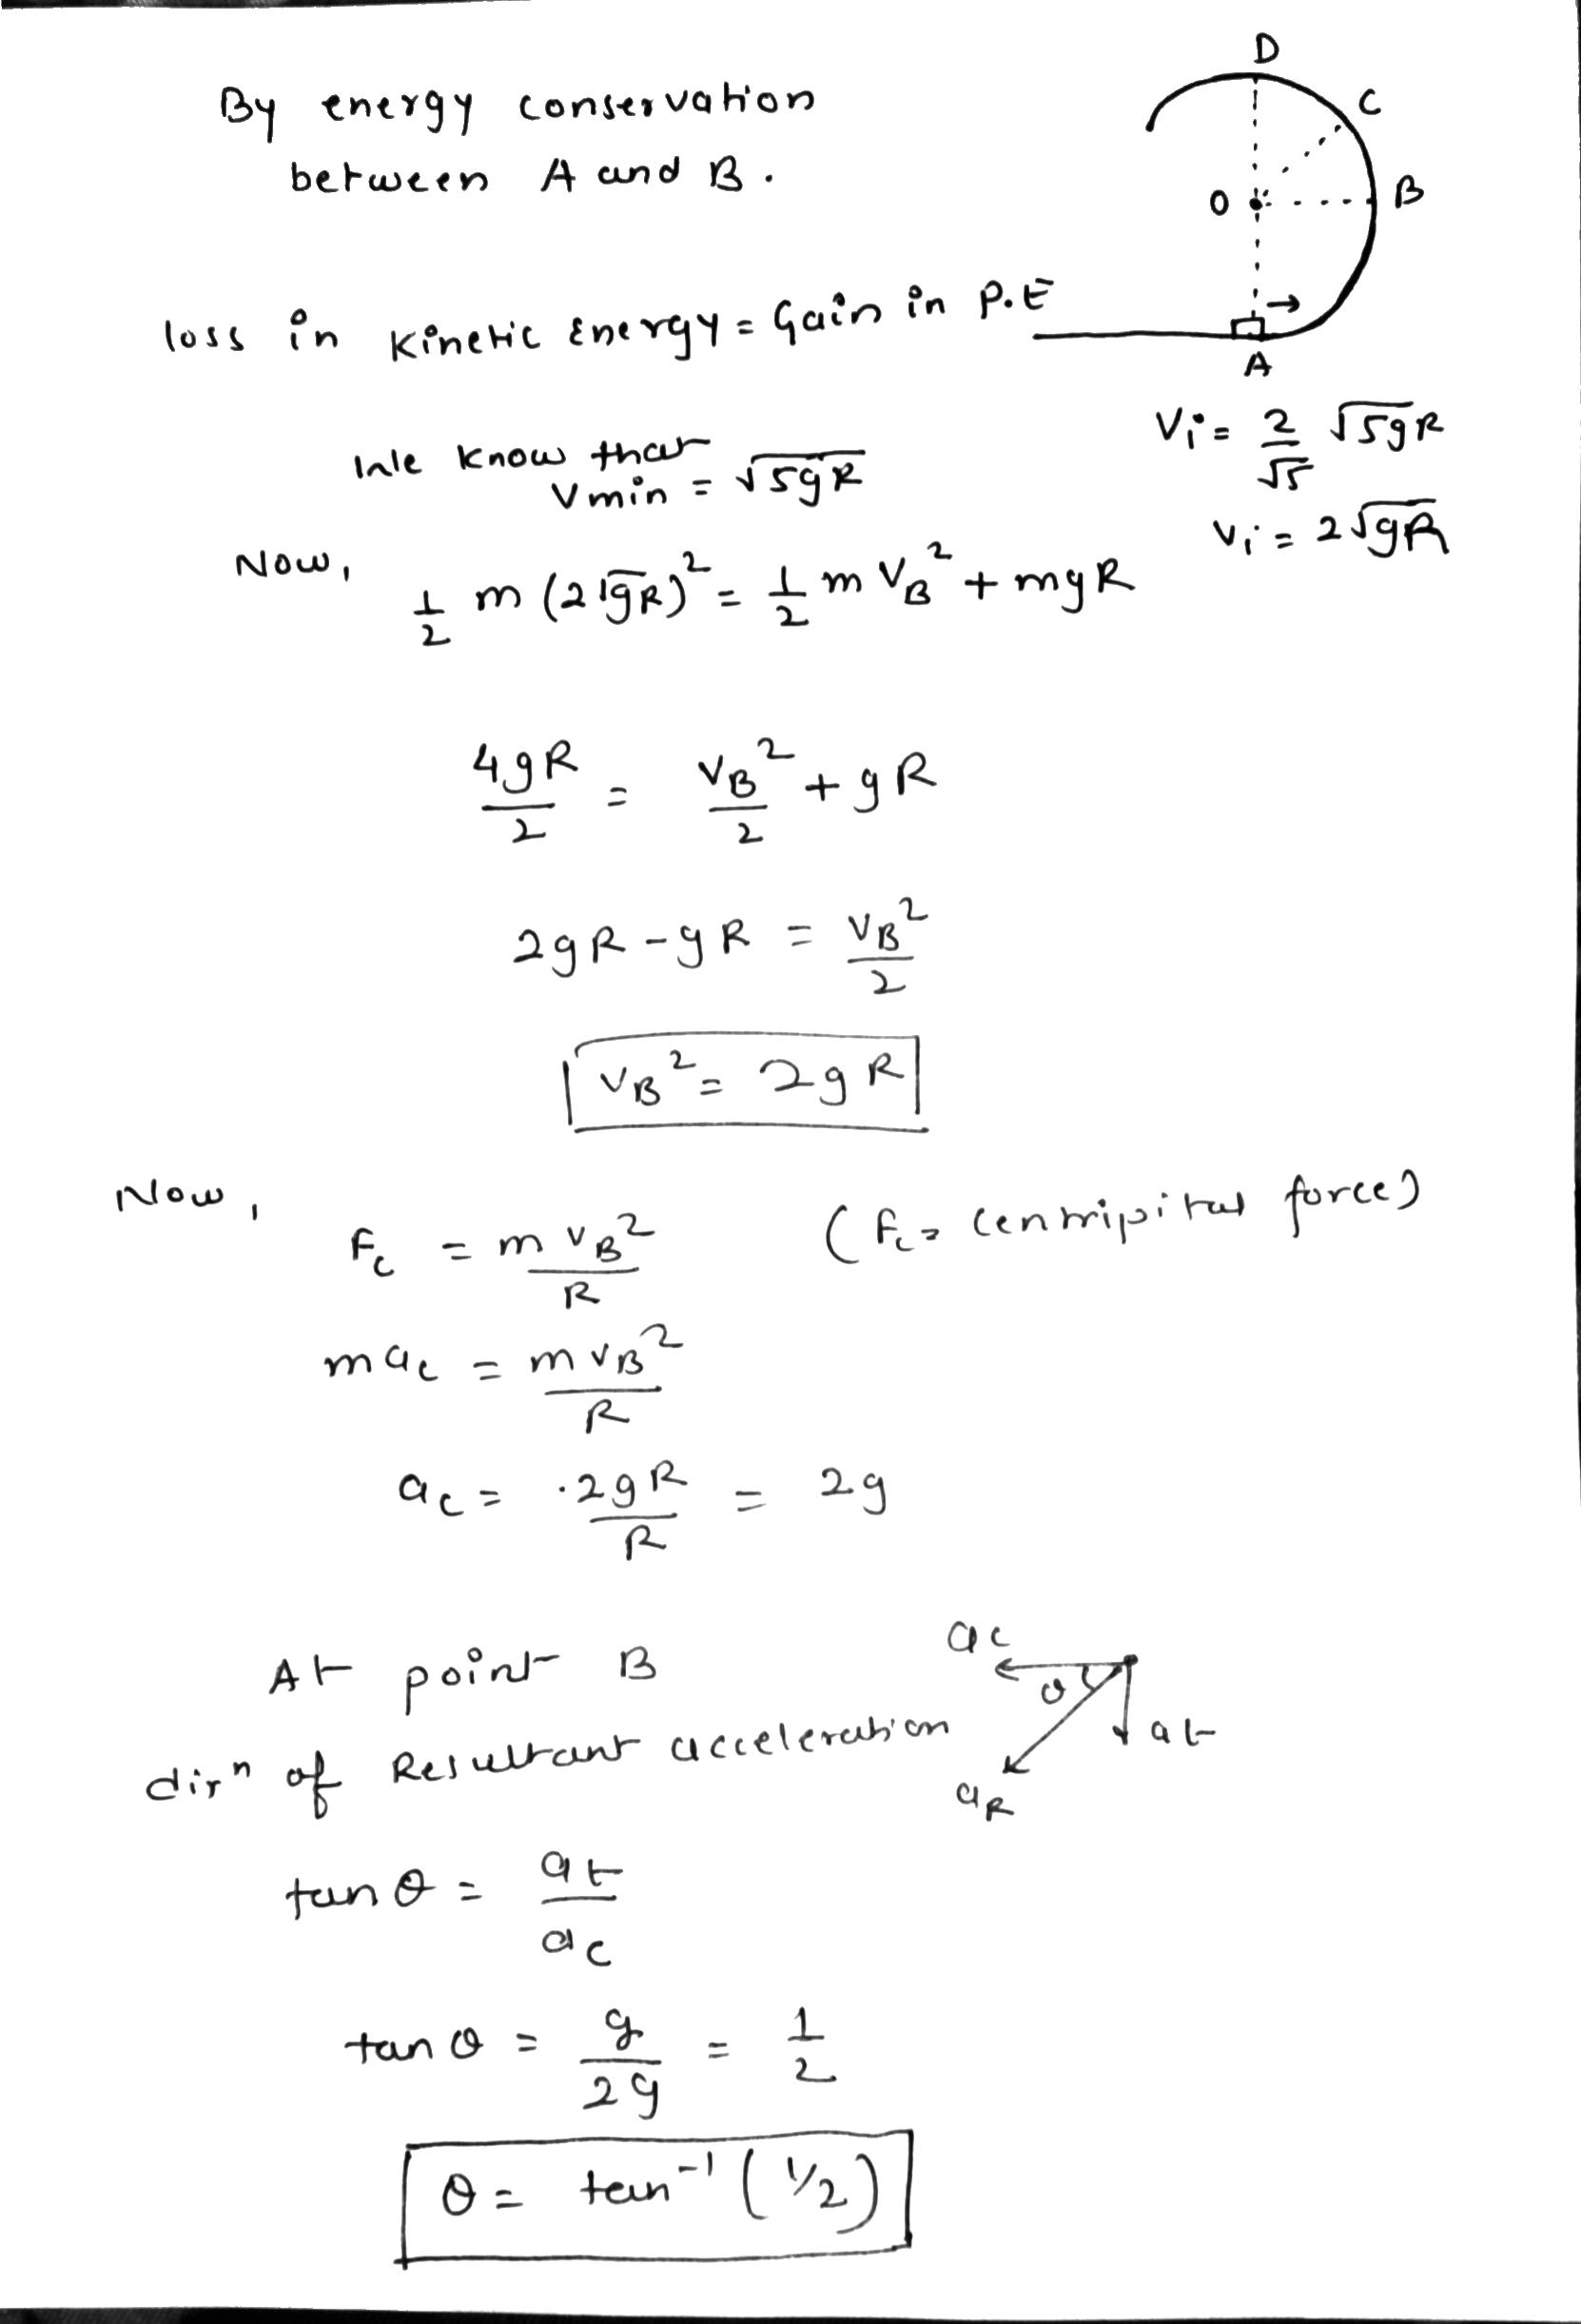 By energy conservation
between A and B.
D
C
O
B
A
loss in Kinetic Energy = Gain in P.E
Vi = 2/√5 √5gR
We know that
Vmin = √5gR
Vi = 2√gR
Now,
1/2 m (2√gR)² = 1/2 m VB² + mgR
4gR/2 = VB²/2 + gR
2gR - gR = VB²/2
VB² = 2gR
Now,
Fc = m VB²/R (Fc = centripital force)
mac = m VB²/R
ac = 2gR/R = 2g
At point B
dirⁿ of Resultant acceleration
ac
θ
at
aR
tan θ = at/ac
tan θ = g/2g = 1/2
θ = tan⁻¹ (1/2)